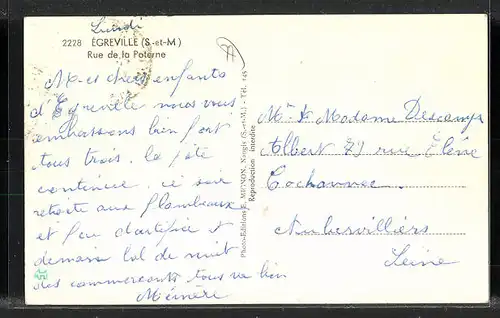 Lundi
2228 EGREVILLE (S-et-M)
Rue de la Poterne
Mes chers enfants
d'Egreville nous vous
embrassons bien fort
tous trois. la fête
continue, ce soir
retraite aux flambeaux
et feu d'artifice et
demain bal de nuit
des commerçants tous va bien
Mémère
Photo-Editions E. MIGNON, Nangis (S.-et-M.) - Tél. 145
Reproduction interdite
Mr & Madame Descamps
Albert 29 rue Elène
Cochannec
Aubervilliers
Seine